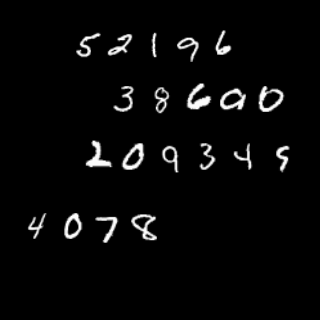 52196
38600
209345
4078